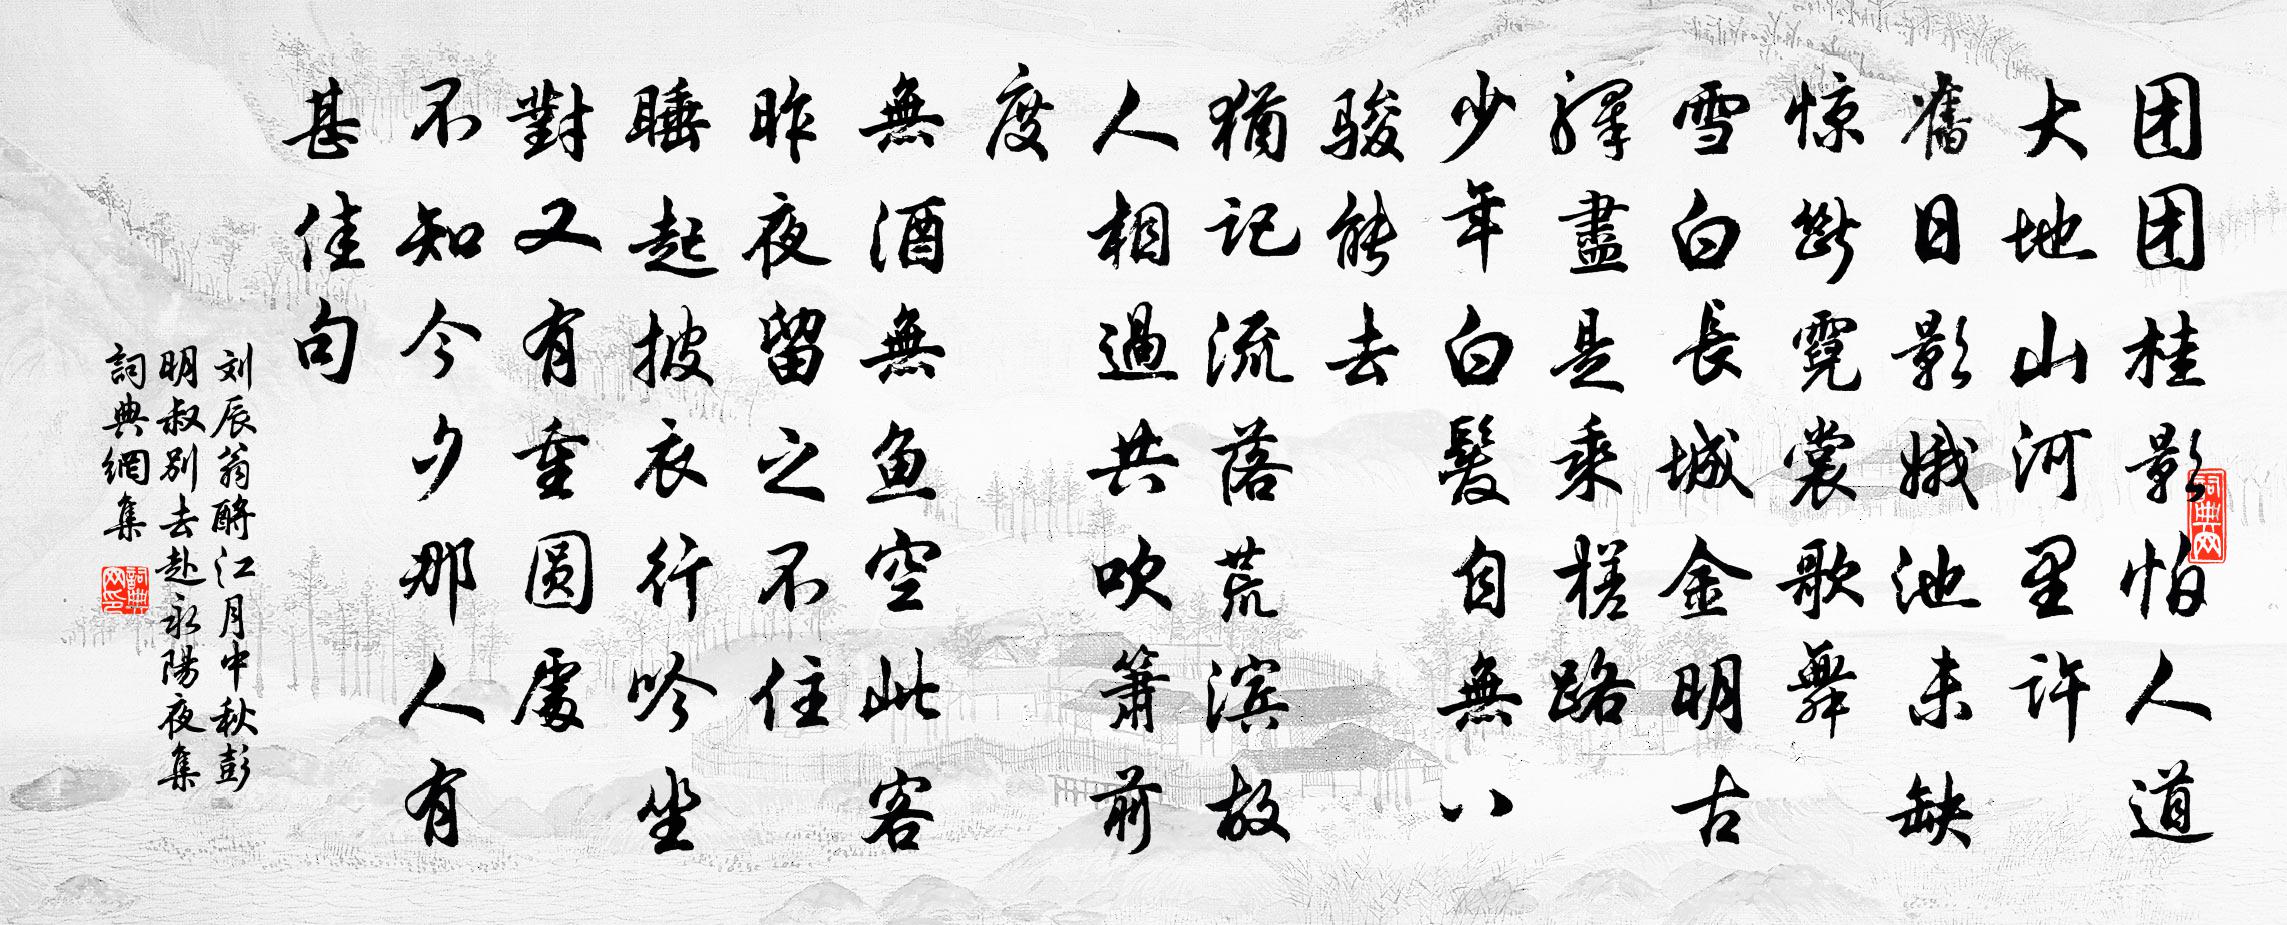 团团桂影怕人道
大地山河里许
舊日影娥池未缺
惊斷霓裳歌舞
雪白長城金明古
驛盡是乘槎路
少年白髮自無八
骏能去
猶记流落荒滨故
人相過共吹簫前
度
無酒無鱼空此客
昨夜留之不住
睡起披衣行吟坐
對又有重圆處
不知今夕那人有
甚佳句
刘辰翁酹江月中秋彭
明叔别去赴永陽夜集
詞典網集
詞典网
詞典网印